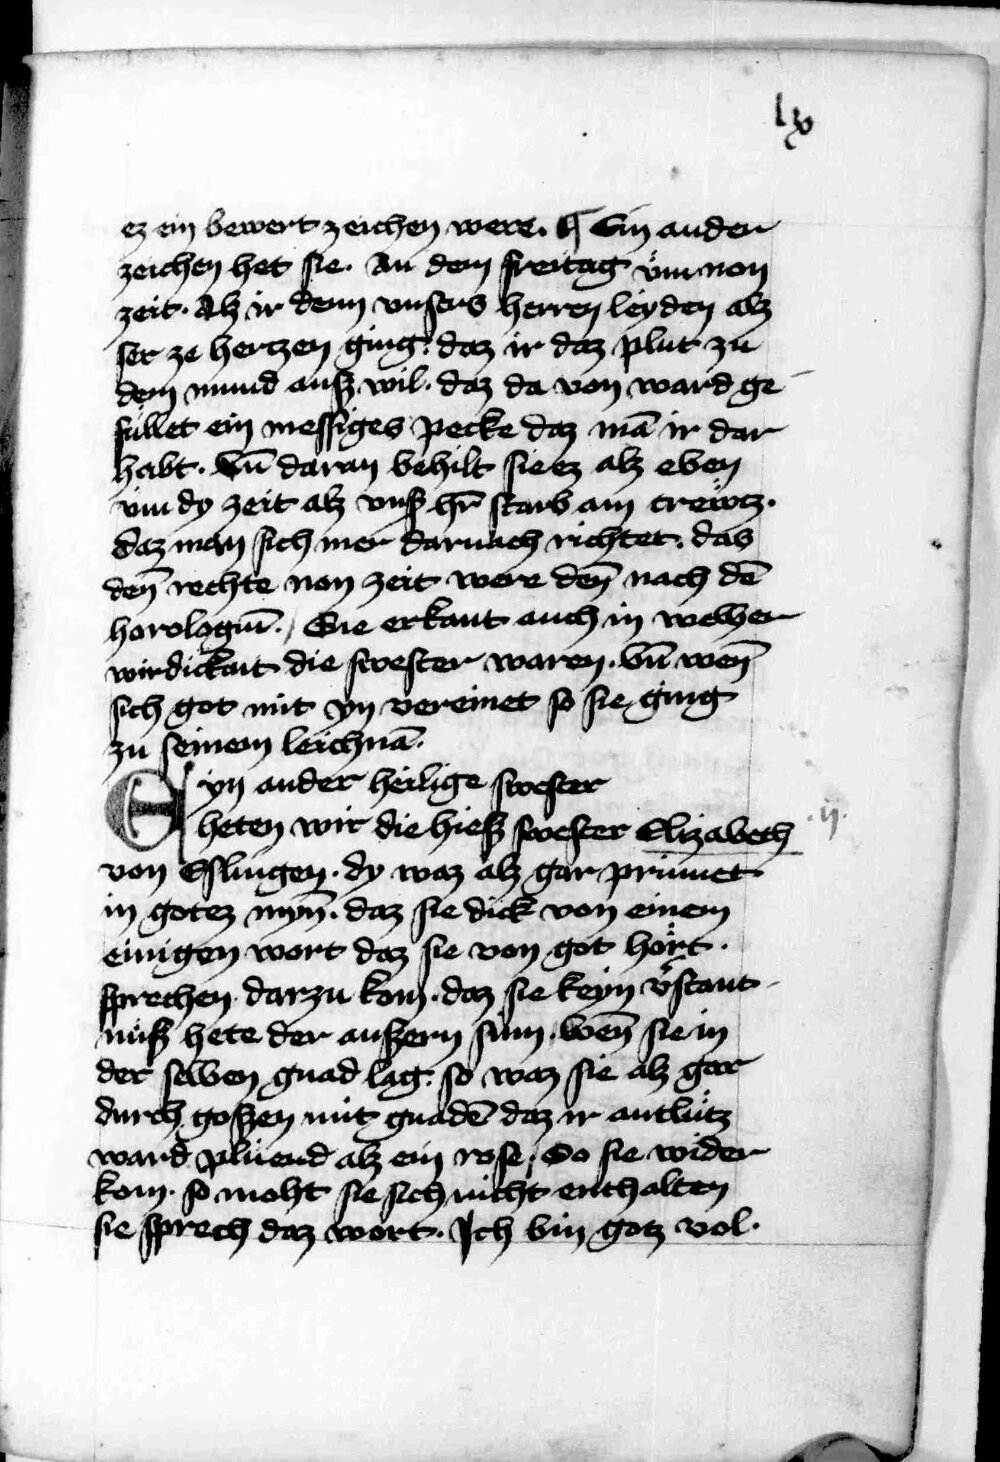 lxv
ez ein bewert zeichen were. ¶ Ein ander
zeichen het sie. An dem freitag vm non
zeit. Alz ir denn vnsers herren leyden alz
ser ze hertzen ging. daz ir daz plut zu
dem mund ausz wil. daz da von ward ge
füllet ein messiges pecke daz mā ir dar
habt. Vn̄ daran behilt sie ez alz eben
vm dy zeit alz vnsz hr̄ starb am creẅtz.
daz man sich mer darnach richtet. das
den̄ rechte non zeit were den̄ nach dē
horologiū. Sie erkant auch in welher
wirdickait die swester waren. Vn̄ wen̄
sich got mit yn vereinet so sie ging
zu seinem leichnā.
Eyn ander heilige swester
heten wir die hiesz swester Elizabeth
.ij.
von Eslingen. dy waz alz gar prinnet
in gotez myn̄. daz sie dick von einem
einigen wort daz sie von got hört.
sprechen darzu kom. daz sie keyn v̈stant
nüsz hete der auszern sinn. Wen̄ sie in
der selben gnad lag. so waz sie alz gar
durch goszen mit gnadē daz ir antlütz
ward plüend alz ein rose. So sie wider
kom. so moht sie sich nicht enthalten
sie sprech daz wort. Ich bin gotz vol.